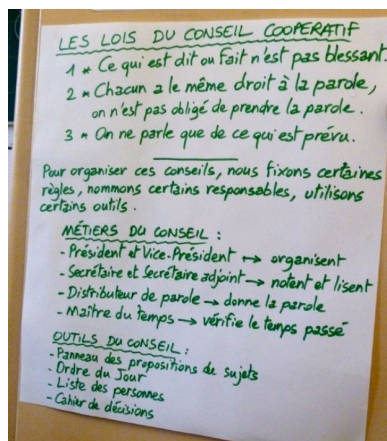 LES LOIS DU CONSEIL COOPERATIF
1 * Ce qui est dit ou fait n'est pas blessant.
2 * Chacun a le même droit à la parole,
on n'est pas obligé de prendre la parole.
3 * On ne parle que de ce qui est prévu.
Pour organiser ces conseils, nous fixons certaines
règles, nommons certains responsables, utilisons
certains outils.
MÉTIERS DU CONSEIL :
- Président et Vice-Président ↔ organisent
- Secrétaire et Secrétaire adjoint → notent et lisent
- Distributeur de parole → donne la parole
- Maître du temps → vérifie le temps passé
OUTILS DU CONSEIL :
- Panneau des propositions de sujets
- Ordre du Jour
- Liste des personnes
- Cahier de décisions